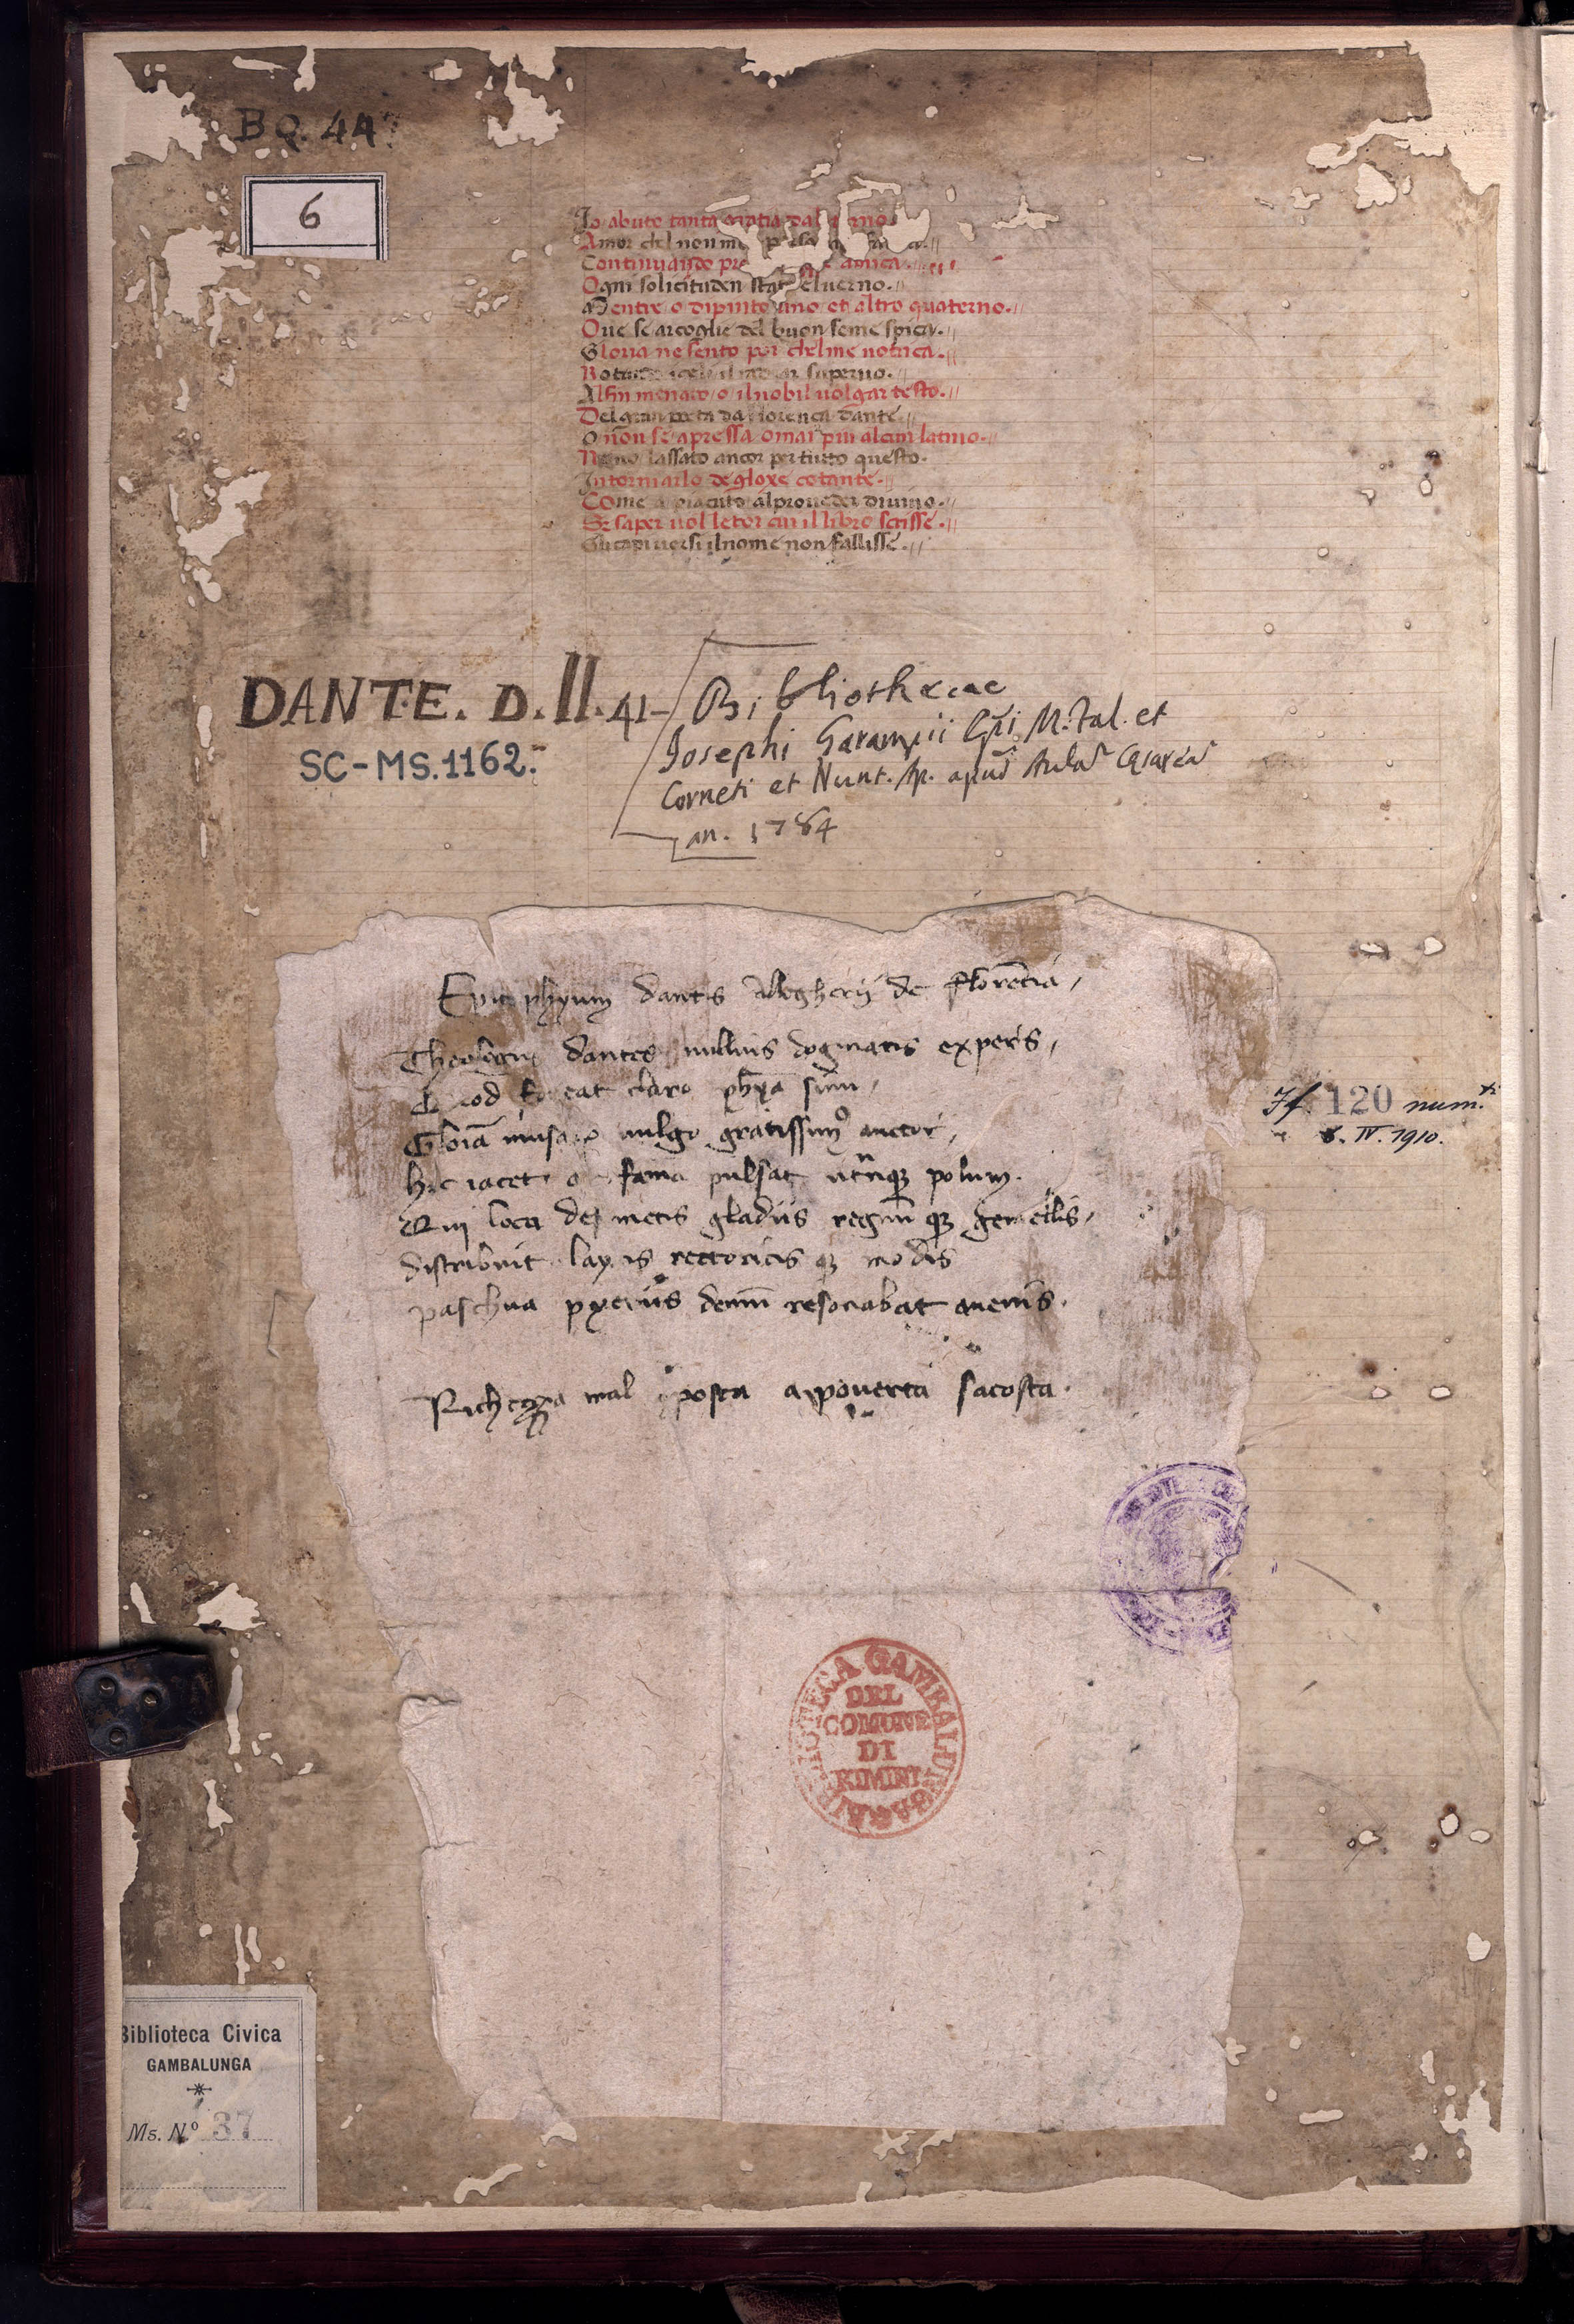 BQ. 44
6
Io abuto tanta gratia dal
Amor chel non me
Continuando pre amica
Ogni solicituden stat eluerno.
Mentre o dipinto uno et altro quaterno.
Oue se arcoglie del buon seme spica.
Gloria ne sento per chelme notrica.
superno.
Alfin menato o il nobil uolgar testo.
Del gran poeta da florenca dante.
O non se apressa omai piu alcun latino.
lassato ancor per tutto questo.
Intorniarlo de gloxe cotante.
Come a piaciuto al proueder diuino.
Se saper uol letor cui il libro scrisse.
Gli capi uersi il nome non fallisse.
DANTE. D. II. 41
SC-MS.1162.
Bibliothecae
Josephi Garampii Epi M. Fal. et
Corneti et Nunt. Ap. apud Aulā Cesareā
an. 1784
Epitaphyum dantis Alegherij de florētia
Theologus dantes nullius dogmatis expers
Quod foueat claro phya sinu
Gloīa musarū uulgo gratissim9 auctor
hic iacet fama pulsat utrūqz polum.
Qui loca defunctis gladiis regnūqz gemellis
distribuit laycis rectoricisqz modis
paschua pyeriis demū resonabat auenis.
Richezza mal sposta a pouerta sacosta.
ff. 120 num.ti
8. IV. 1910.
BIBLIOTECA GAMBALUNGA
DEL
COMUNE
DI
RIMINI
Biblioteca Civica
GAMBALUNGA
Ms. N.º 37